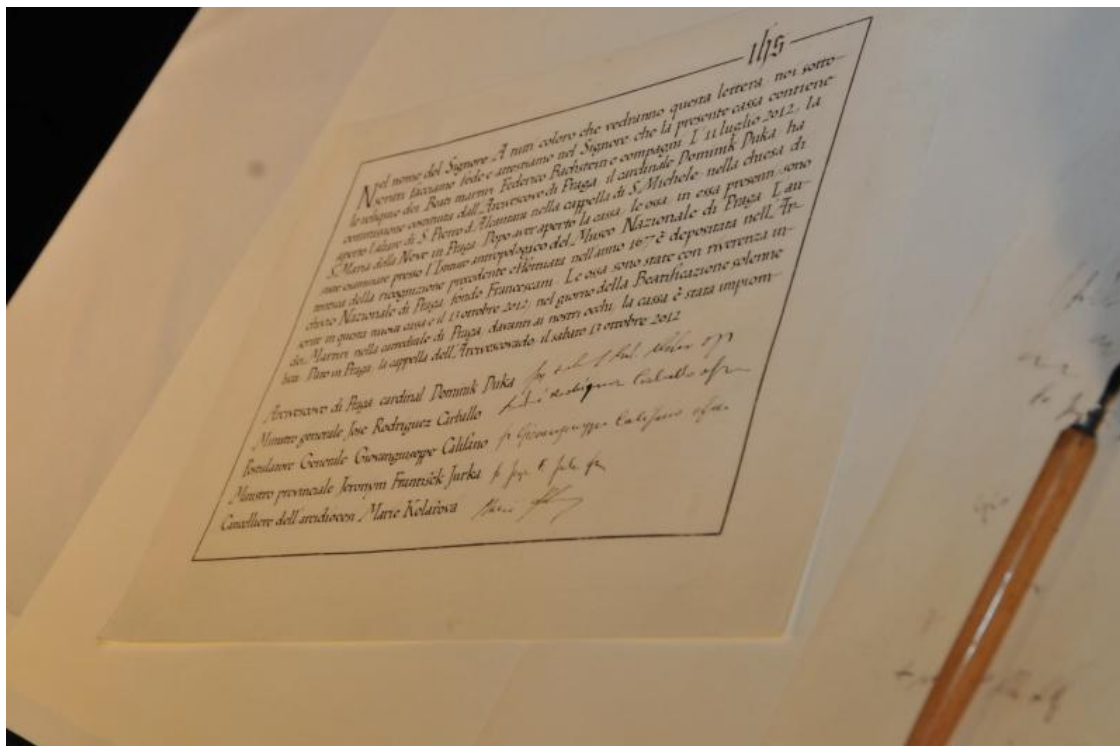 ihs
Nel nome del Signore. A tutti coloro che vedranno questa lettera, noi sotto-
scritti facciamo fede e attestiamo nel Signore che la presente cassa contiene
le reliquie dei Beati martiri Federico Bachstein e compagni. L'11 luglio 2012, la
commissione costituita dall'Arcivescovo di Praga, il cardinale Dominik Duka, ha
aperto l'altare di S. Pietro d'Alcantara nella cappella di S. Michele nella chiesa di
S. Maria della Neve in Praga. Dopo aver aperto la cassa, le ossa, in essa presenti, sono
state esaminate presso l'Istituto antropologico del Museo Nazionale di Praga. L'au-
tentica della ricognizione precedente effettuata nell'anno 1677 è depositata nell'Ar-
chivio Nazionale di Praga, fondo Francescani. Le ossa sono state con riverenza in-
serite in questa nuova cassa e il 13 ottobre 2012, nel giorno della Beatificazione solenne
dei Martiri nella cattedrale di Praga, davanti ai nostri occhi, la cassa è stata
Dato in Praga, la cappella dell'Arcivescovado, il sabato 13 ottobre 2012
Arcivescovo di Praga cardinal Dominik Duka
Ministro generale José Rodríguez Carballo
Postulatore Generale Giovangiuseppe Califano
Ministro provinciale Jeroným František Jurka
Cancelliere dell'arcidiocesi Marie Kolářová